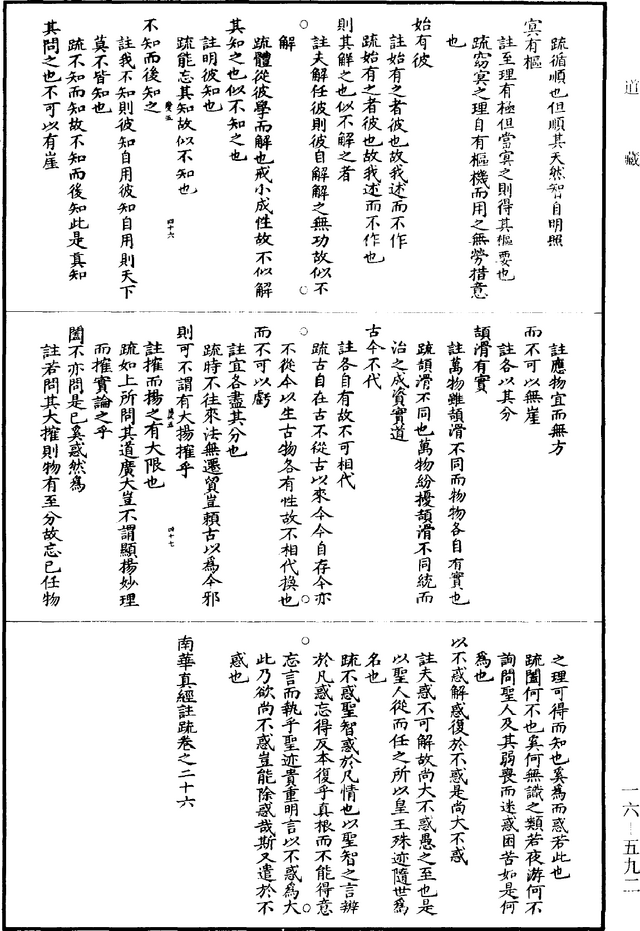 道藏
疏循順也但順其天然智自明照
冥有樞
註至理有極但當冥之則得其樞要也
疏窈冥之理自有樞機而用之無勞措意
也
始有彼
註始有之者彼也故我述而不作
疏始有之者彼也故我述而不作也
則其解之也似不解之者
註夫解任彼則彼自解解之無功故似不
解
疏體從彼學而解也戒小成性故不似解
其知之也似不知之也
註明彼知也
疏能忘其知故似不知也
不知而後知之
四十六
註我不知則彼知自用彼知自用則天下
莫不皆知也
疏不知而知知故不知而後知此是真知
其問之也不可以有崖
註應物宜而無方
而不可以無崖
註各以其分
頡滑有實
註萬物雖頡滑不同而物物各自有實也
疏頡滑不同也萬物紛擾頡滑不同統而
治之咸資實道
古今不代
註各自有故不可相代
疏古自在古不從古以來今今自存今亦
不從今以生古物各有性故不相代換也
而不可以虧
註宜各盡其分也
疏時不往來法無遷貿豈賴古以為今邪
則可不謂有大揚搉乎
四十七
註搉而揚之有大限也
疏如上所問其道廣大豈不謂顯揚妙理
而搉實論之乎
闔不亦問是已奚惑然為
註若問其大搉則物有至分故忘己任物
之理可得而知也奚為而惑若此也
疏闔何不也奚何無識之類若夜游何不
詢問聖人及其弱喪而迷惑困苦如是何
為也
以不惑解惑復於不惑是尚大不惑
註夫惑不可解故尚大不惑愚之至也是
以聖人從而任之所以皇王殊迹隨世為
名也
疏不惑聖智惑於凡情也以聖智之言辨
於凡惑忘得反本復乎真根而不能得意
忘言而執乎聖迹貴重明言以不惑為大
此乃欲尚不惑豈能除惑哉斯又遣於不
惑也
南華真經註疏卷之二十六
一六—五九二